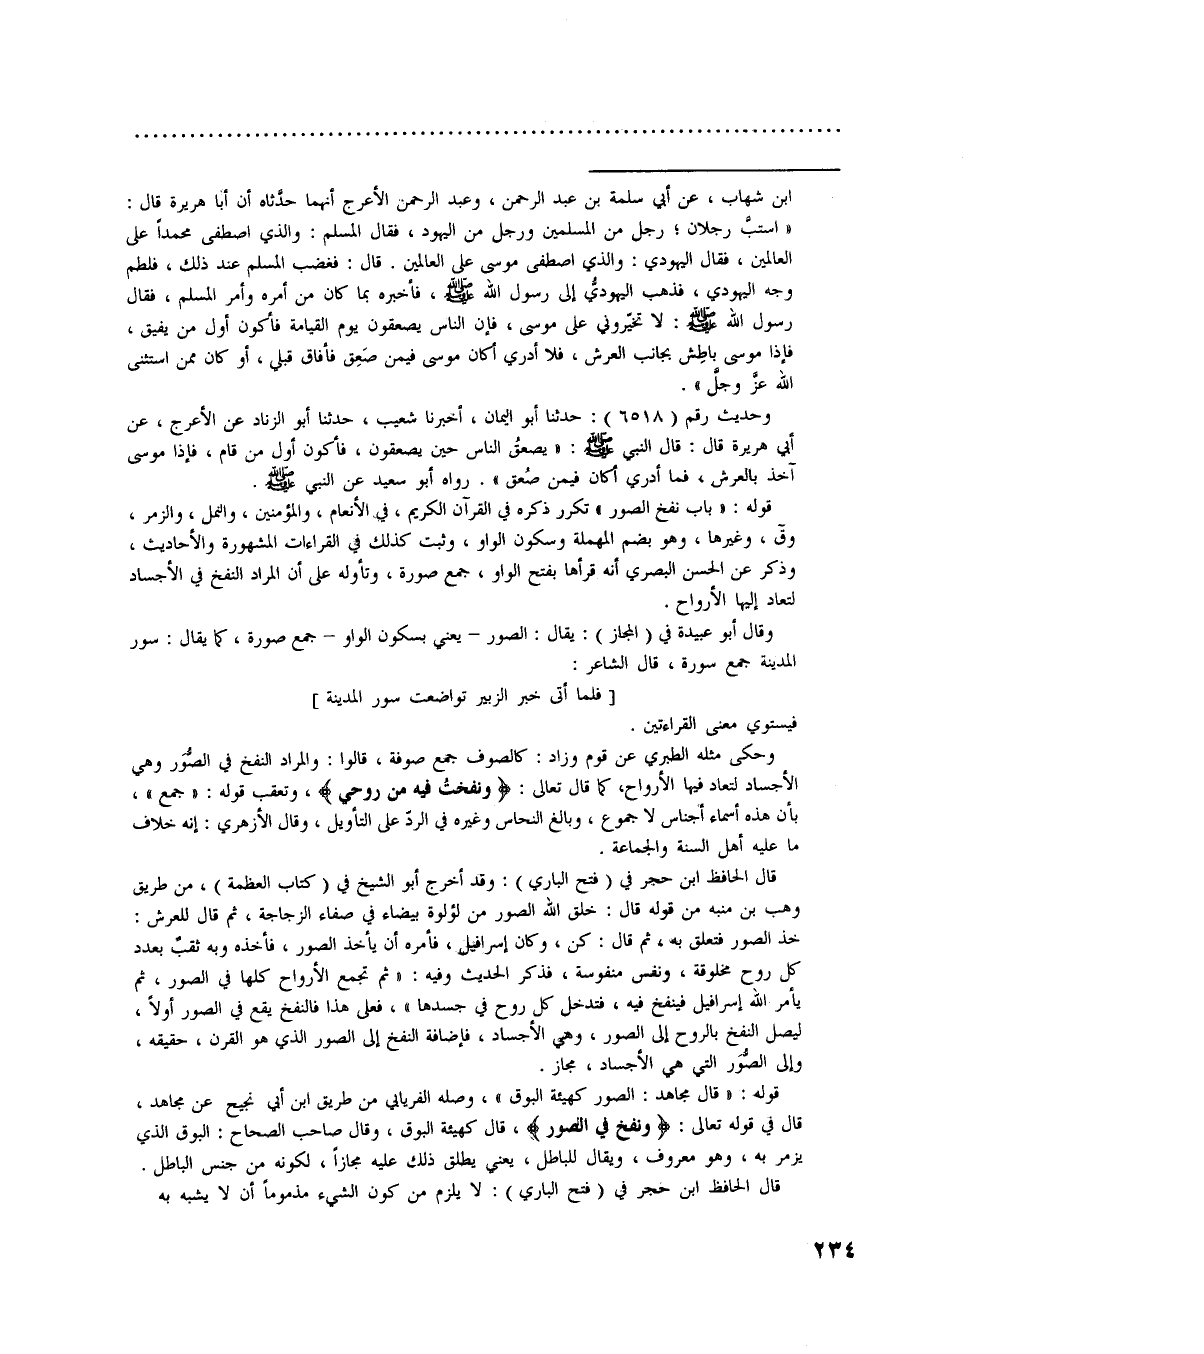 ابن شهاب ، عن أبي سلمة بن عبد الرحمن ، وعبد الرحمن الأعرج أنهما حدَّثاه أن أبا هريرة قال :
« استبَّ رجلان ؛ رجل من المسلمين ورجل من اليهود ، فقال المسلم : والذي اصطفى محمداً على
العالمين ، فقال اليهودي : والذي اصطفى موسى على العالمين . قال : فغضب المسلم عند ذلك ، فلطم
وجه اليهودي ، فذهب اليهوديُّ إلى رسول الله ﷺ ، فأخبره بما كان من أمره وأمر المسلم ، فقال
رسول الله ﷺ : لا تخيّروني على موسى ، فإن الناس يصعقون يوم القيامة فأكون أول من يفيق ،
فإذا موسى باطِش بجانب العرش ، فلا أدري أكان موسى فيمن صَعِق فأفاق قبلي ، أو كان ممن استثنى
الله عزَّ وجلَّ » .
وحديث رقم ( ٦٥١٨ ) : حدثنا أبو اليمان ، أخبرنا شعيب ، حدثنا أبو الزناد عن الأعرج ، عن
أبي هريرة قال : قال النبي ﷺ : « يصعقُ الناس حين يصعقون ، فأكون أول من قام ، فإذا موسى
آخذ بالعرش ، فما أدري أكان فيمن صُعق » . رواه أبو سعيد عن النبي ﷺ .
قوله : « باب نفخ الصور » تكرر ذكره في القرآن الكريم ، في الأنعام ، والمؤمنين ، والنمل ، والزمر ،
وقٓ ، وغيرها ، وهو بضم المهملة وسكون الواو ، وثبت كذلك في القراءات المشهورة والأحاديث ،
وذكر عن الحسن البصري أنه قرأها بفتح الواو ، جمع صورة ، وتأوله على أن المراد النفخ في الأجساد
لتعاد إليها الأرواح .
وقال أبو عبيدة في ( المجاز ) : يقال : الصور – يعني بسكون الواو – جمع صورة ، كما يقال : سور
المدينة جمع سورة ، قال الشاعر :
[ فلما أتى خبر الزبير تواضعت سور المدينة ]
فيستوي معنى القراءتين .
وحكى مثله الطبري عن قوم وزاد : كالصوف جمع صوفة ، قالوا : والمراد النفخ في الصُّوَر وهي
الأجساد لتعاد فيها الأرواح، كما قال تعالى : ﴿ ونفختُ فيه من روحي ﴾ ، وتعقب قوله : « جمع » ،
بأن هذه أسماء أجناس لا جموع ، وبالغ النحاس وغيره في الردّ على التأويل ، وقال الأزهري : إنه خلاف
ما عليه أهل السنة والجماعة .
قال الحافظ ابن حجر في ( فتح الباري ) : وقد أخرج أبو الشيخ في ( كتاب العظمة ) ، من طريق
وهب بن منبه من قوله قال : خلق الله الصور من لؤلوة بيضاء في صفاء الزجاجة ، ثم قال للعرش :
خذ الصور فتعلق به ، ثم قال : كن ، وكان إسرافيل ، فأمره أن يأخذ الصور ، فأخذه وبه ثقبٌ بعدد
كل روح مخلوقة ، ونفس منفوسة ، فذكر الحديث وفيه : « ثم تجمع الأرواح كلها في الصور ، ثم
يأمر الله إسرافيل فينفخ فيه ، فتدخل كل روح في جسدها » ، فعلى هذا فالنفخ يقع في الصور أولاً ،
ليصل النفخ بالروح إلى الصور ، وهي الأجساد ، فإضافة النفخ إلى الصور الذي هو القرن ، حقيقه ،
وإلى الصُّوَر التي هي الأجساد ، مجاز .
قوله : « قال مجاهد : الصور كهيئة البوق » ، وصله الفريابي من طريق ابن أبي نجيح عن مجاهد ،
قال في قوله تعالى : ﴿ ونفخ في الصور ﴾ ، قال كهيئة البوق ، وقال صاحب الصحاح : البوق الذي
يزمر به ، وهو معروف ، ويقال للباطل ، يعني يطلق ذلك عليه مجازاً ، لكونه من جنس الباطل .
قال الحافظ ابن حجر في ( فتح الباري ) : لا يلزم من كون الشيء مذموماً أن لا يشبه به
٢٣٤